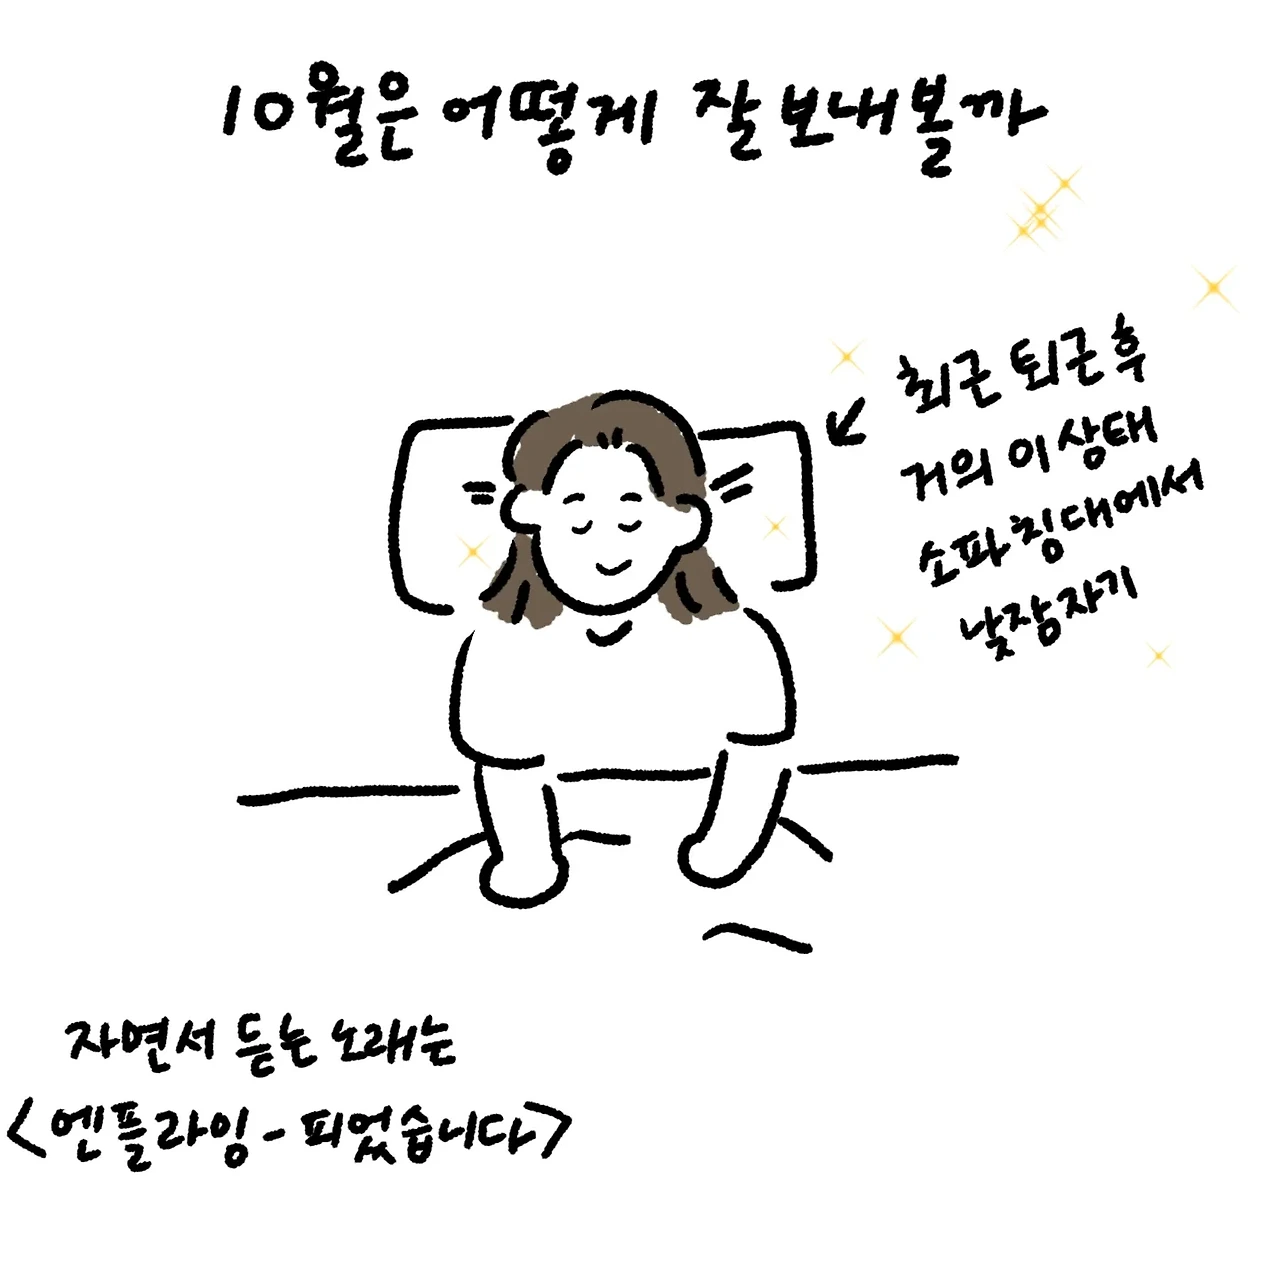 10월은 어떻게 잘 보내볼까
최근 퇴근 후
거의 이 상태
소파 침대에서
낮잠자기
자연서 듣는 노래는
<엔플라잉 - 피었습니다>